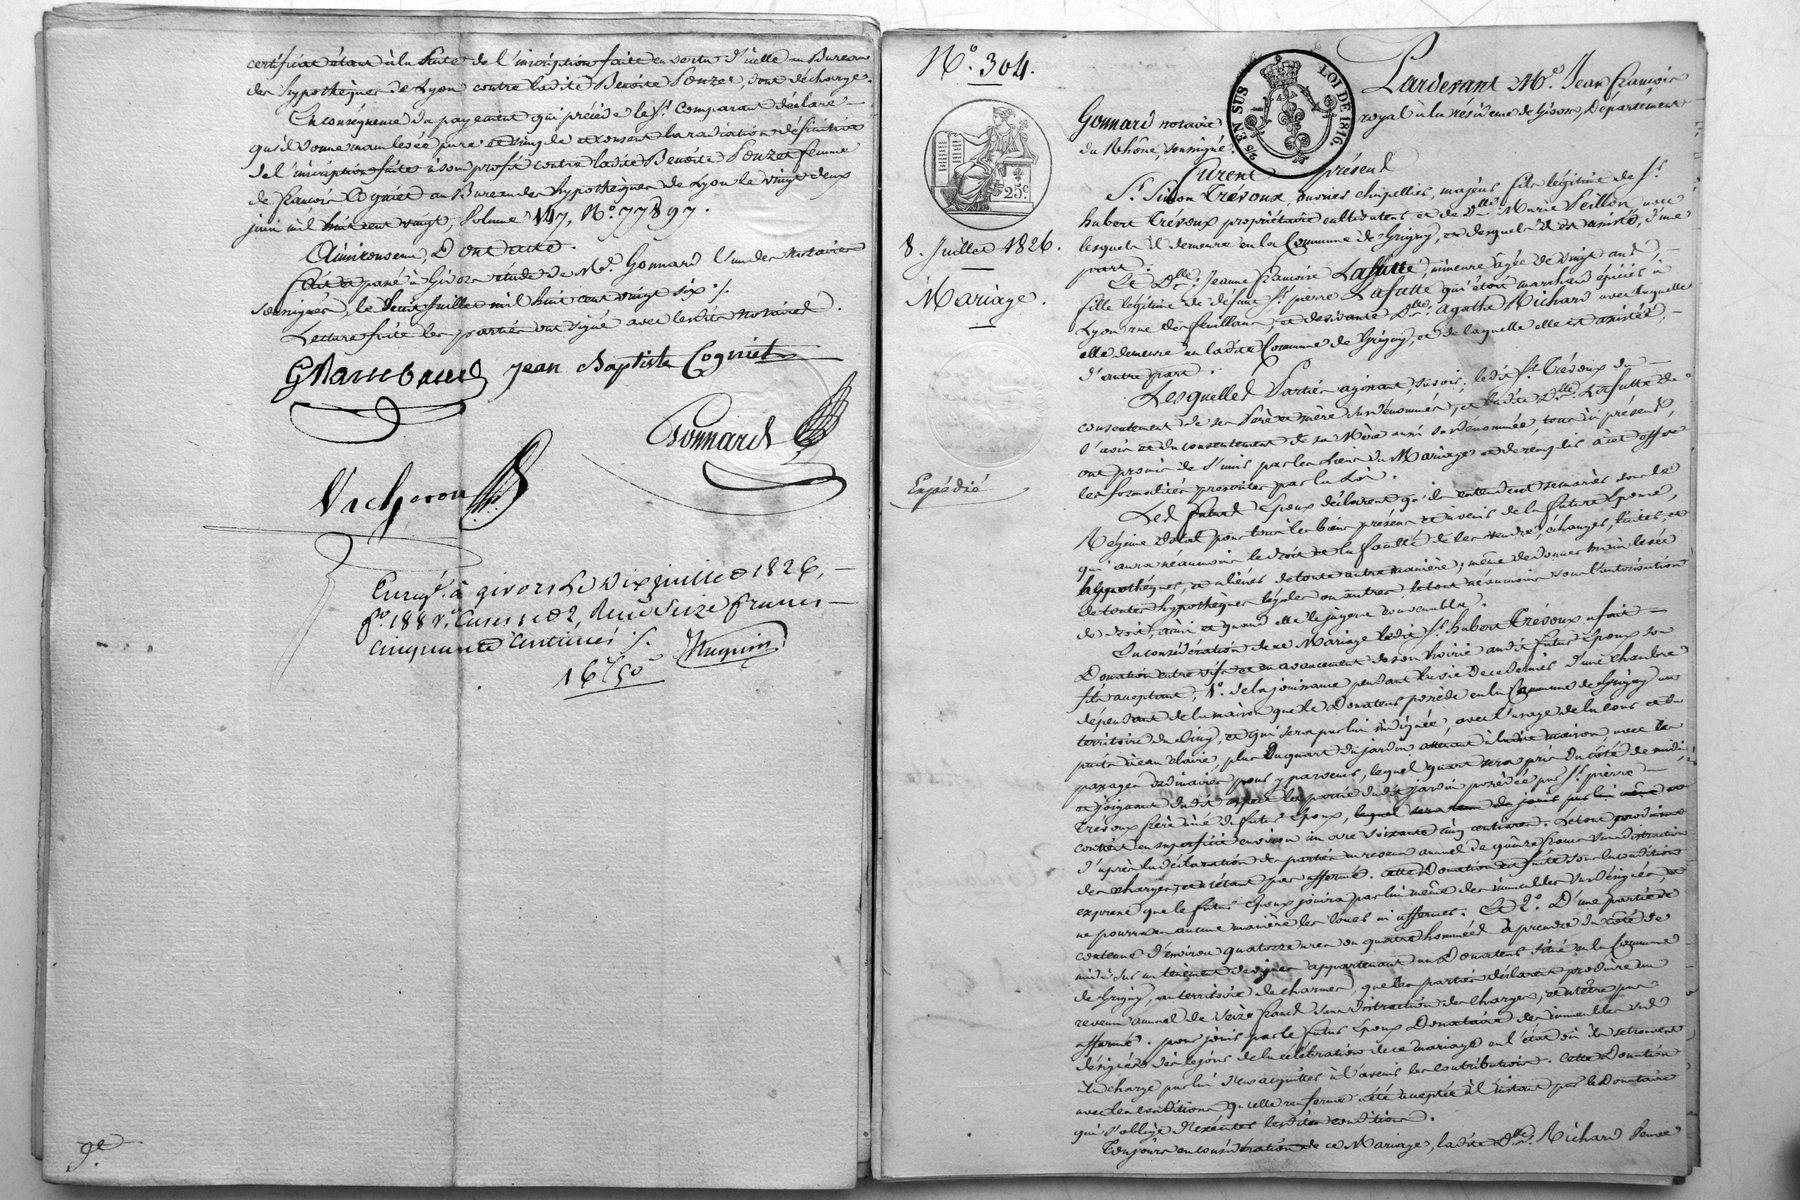 certificat étant à la suite de l'inscription faite en vertu d'icelle au Bureau
des hypothèques de Lyon contre ladite Benoîte Pouzet, dont décharge.
En conséquence du payement qui précède le Sr. Comparant déclare
qu'il donne main levée pure et simple et consent la radiation définitive
de l'inscription faite à son profit contre ladite Benoîte Pouzet femme
de françois Cognet au Bureau des hypothèques de Lyon le vingt deux
juin mil huit cent vingt, Volume 147, No. 77897.
Ainsi convenu, Dont acte.
Fait et passé à Givors étude de Me. Gonnard l'un des notaires
soussignés, le deux juillet mil huit cent vingt six.
Lecture faite les parties ont signé avec lesdits notaires.
jean Baptiste Cogniet
Gonnard
Vacheron
Enreg. à givors le dix juillet 1826,
fo. 188 vo. Case 2, Reçu Seize francs
cinquante centimes
16f 50c
No. 304.
EN SUS
LOI DE 1816.
25c.
8. Juillet 1826.
Mariage.
Expédié
Pardevant Me. Jean françois
Gonnard notaire royal à la résidence de Givors, Département
du Rhône, soussigné.
furent présens
Sr. Simon Trévoux, ouvrier chapellier, majeur, fils légitime de Sr.
hubert Trévoux propriétaire cultivateur et de Dlle. Marie Seillon, avec
lesquels il demeure en la Commune de Grigny, et desquels il est assisté, d'une
part.
Et Dlle. Jeanne françoise Lafutte, mineure âgée de vingt ans,
fille légitime de défunt Sr. pierre Lafutte qui étoit marchand épicier à
Lyon rue des feuillans, et de vivante Dlle. Agathe Richard avec laquelle
elle demeure en ladite Commune de Grigny, et de laquelle elle est assistée,
d'autre part.
Lesquelles Parties agissant, savoir; ledit Sr. Trévoux du
consentement de ses Père et mère susdénommés, et ladite Dlle. Lafutte de
l'avis et du consentement de sa Mère aussi susdénommée, tous ici présens,
ont promis de s'unir par les liens du Mariage et de remplir à cet effet
les formalités prescrites par la Loi.
Les futurs Epoux déclarent qu'ils entendent se marier sous le
Régime dotal pour tous les biens présens et à venir de la future Epouse,
qui aura néanmoins le droit et la faculté de les vendre, échanger, traiter,
hypothéquer, et aliéner de toute autre manière; même de donner main levée
de toutes hypothèques légales ou autres le tout néanmoins sous l'autorisation
de droit, ainsi et quand elle le jugera convenable.
En considération de ce Mariage ledit Sr. hubert Trévoux a fait
Donation entre vifs et en avancement de son hoirie audit futur Epoux son
fils acceptant, 1o. de la jouissance pendant la vie de ce dernier d'une chambre
dépendante de la maison que le Donateur possède en la Commune de Grigny au
territoire du Ding, et qui sera par lui désignée, avec l'usage de la cour et du
puits à eau claire, plus du quart du jardin attenant à ladite maison, avec les
passages ordinaires pour y parvenir, lequel quart sera pris du côté de midi
et joignant la partie dudit jardin possédée par Sr. pierre
Trévoux frère aîné du futur Epoux,
contient en superficie environ un are soixante cinq centiares. Le tout produisant
d'après la déclaration des parties un revenu annuel de quinze francs sans distraction
des charges, et n'étant pas affermé. Cette Donation est faite sous la condition
expresse que le futur Epoux jouira par lui même des immeubles susdésignés, et
ne pourra en aucune manière les louer ni affermer. Et 2o. D'une partie de
contenue d'environ quatorze ares ou quatre hommées à prendre du côté de
midi sur un tènement de vignes appartenant au Donateur situé en la Commune
de Grigny, au territoire de charmes, que les parties déclarent produire un
revenu annuel de seize francs sans distraction des charges, et n'être pas
affermé. pour jouir par le futur Epoux Donataire des immeubles sus
désignés dès le jour de la célébration de ce mariage en l'état où ils se trouvent
à la charge par lui d'en acquitter à l'avenir les contributions. Cette Donation
avec les conditions qu'elle renferme a été acceptée à l'instant par le Donataire
qui s'oblige d'exécuter lesdites conditions.
Toujours en considération de ce Mariage, ladite Dlle. Richard Veuve